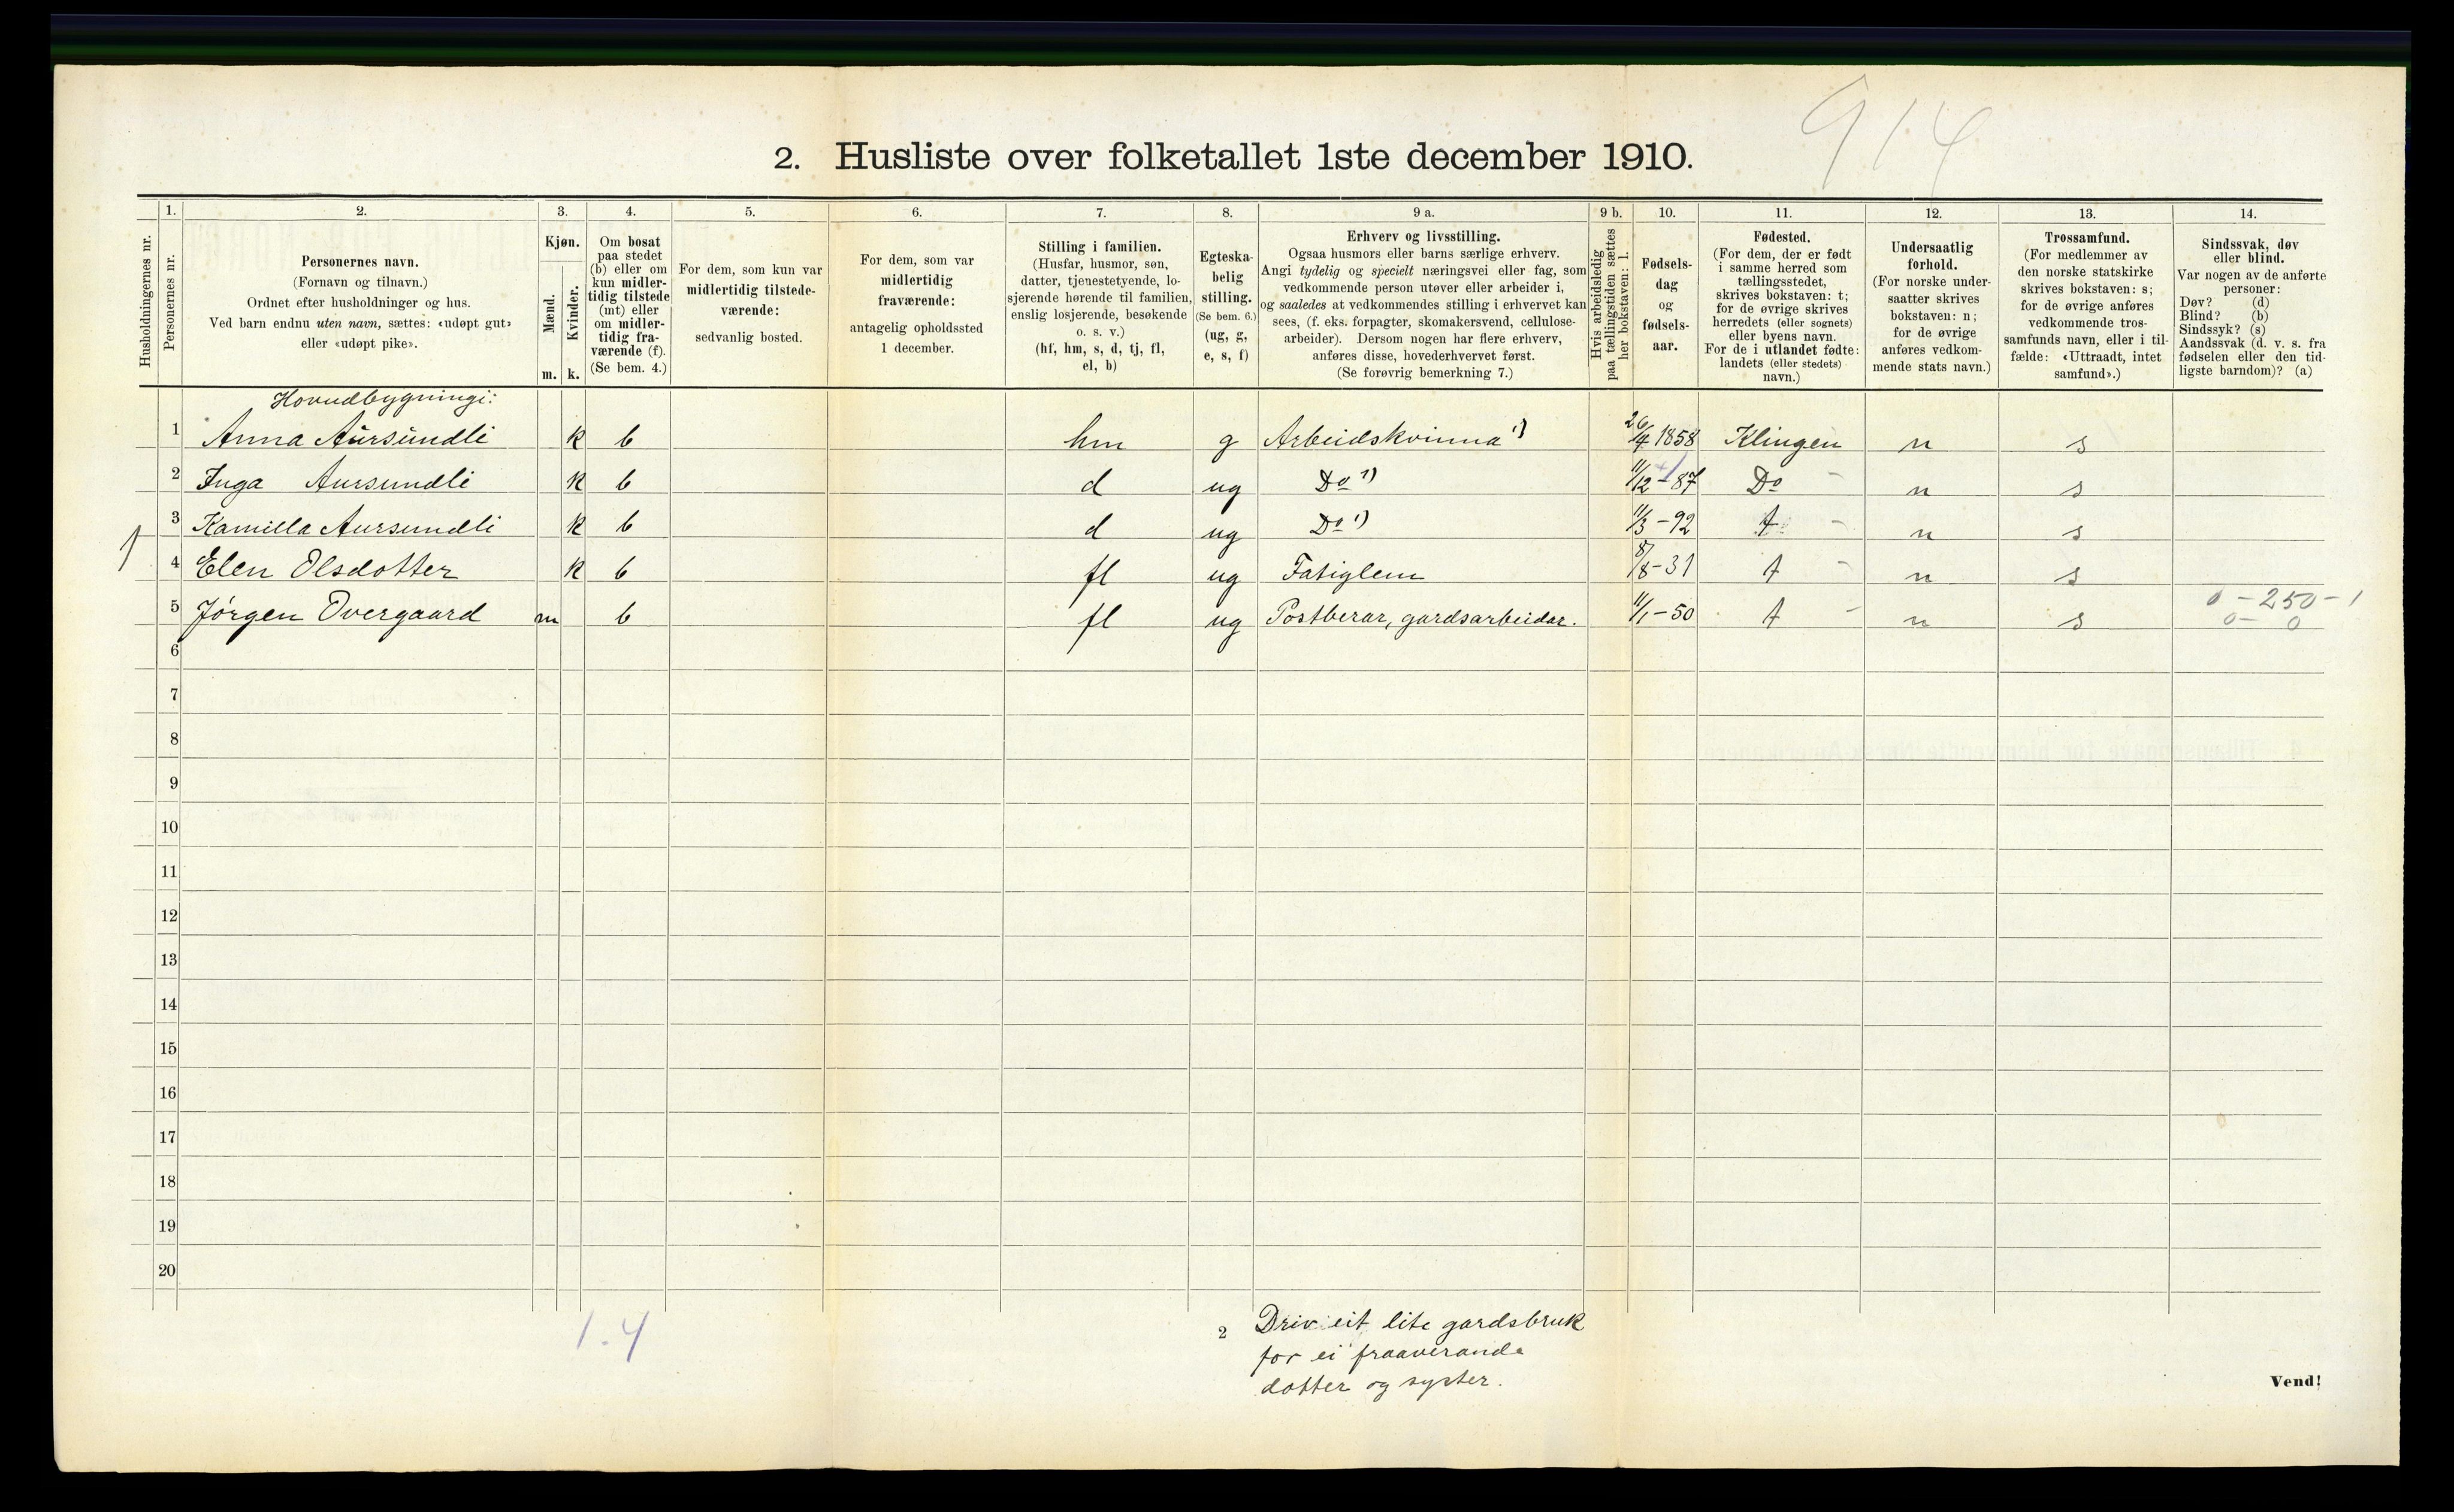 914
2. Husliste over folketallet 1ste december 1910.
1. 2. 3. 4. 5. 6. 7. 8. 9 a. 9 b. 10. 11. 12. 13. 14.
Husholdningernes nr.
Personernes nr.
Personernes navn.
(Fornavn og tilnavn.)
Ordnet efter husholdninger og hus.
Ved barn endnu uten navn, sættes: «udøpt gut»
eller «udøpt pike».
Kjøn.
Mænd.
Kvinder.
m. k.
Om bosat
paa stedet
(b) eller om
kun midler-
tidig tilstede
(mt) eller
om midler-
tidig fra-
værende (f).
(Se bem. 4.)
For dem, som kun var
midlertidig tilstede-
værende:
sedvanlig bosted.
For dem, som var
midlertidig
fraværende:
antagelig opholdssted
1 december.
Stilling i familien.
(Husfar, husmor, søn,
datter, tjenestetyende, lo-
sjerende hørende til familien,
enslig losjerende, besøkende
o. s. v.)
(hf, hm, s, d, tj, fl,
el, b)
Egteska-
belig
stilling.
(Se bem. 6.)
(ug, g,
e, s, f)
Erhverv og livsstilling.
Ogsaa husmors eller barns særlige erhverv.
Angi tydelig og specielt næringsvei eller fag, som
vedkommende person utøver eller arbeider i,
og saaledes at vedkommendes stilling i erhvervet kan
sees, (f. eks. forpagter, skomakersvend, cellulose-
arbeider). Dersom nogen har flere erhverv,
anføres disse, hovederhvervet først.
(Se forøvrig bemerkning 7.)
Hvis arbeidsledig
paa tællingstiden sættes
her bokstaven: l.
Fødsels-
dag
og
fødsels-
aar.
Fødested.
(For dem, der er født
i samme herred som
tællingsstedet,
skrives bokstaven: t;
for de øvrige skrives
herredets (eller sognets)
eller byens navn.
For de i utlandet fødte:
landets (eller stedets)
navn.)
Undersaatlig
forhold.
(For norske under-
saatter skrives
bokstaven: n;
for de øvrige
anføres vedkom-
mende stats navn.)
Trossamfund.
(For medlemmer av
den norske statskirke
skrives bokstaven: s;
for de øvrige anføres
vedkommende tros-
samfunds navn, eller i til-
fælde: «Uttraadt, intet
samfund».)
Sindssvak, døv
eller blind.
Var nogen av de anførte
personer:
Døv? (d)
Blind? (b)
Sindssyk? (s)
Aandssvak (d. v. s. fra
fødselen eller den tid-
ligste barndom)? (a)
Hovudbygningi:
1 Anna Aursundli k b hm g Arbeidskvinna 1) 26/4 1858 Klingen n s
2 Inga Aursundli k b d ug Do 1) 11/12 - 87 Do - n s
3 Kamilla Aursundli k b d ug Do 1) 11/3 - 92 t - n s
1 4 Elen Olsdotter k b fl ug Fatiglem 8/8 - 31 t - n s
5 Jörgen Overgaard m b fl ug Postberar, gardsarbeidar. 11/1 - 50 t - n s 0 - 250 - 1
0 - 0
6
7
8
9
10
11
12
13
14
15
16
17
18
19
20
1.4
2 Driv eit lite gardsbruk
for ei fraaverande
dotter og syster.
Vend!